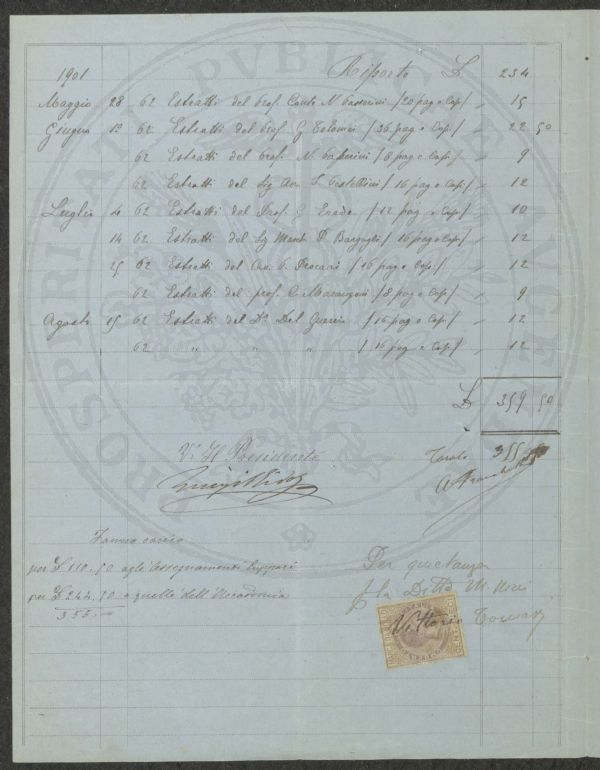 1901 Riporto £ 234
Maggio 28 62 Estratti del Prof. Conte N. Passerini /20 pag e Cop/ " 15
Giugno 12 62 Estratti del Prof. G. Tolomei /36 pag e Cop/ " 22 50
62 Estratti del Prof. N. Passerini /8 pag e Cop/ " 9
62 Estratti del Sig. Avv. /16 pag e Cop/ " 12
Luglio 4 62 Estratti del Prof. G /12 pag e Cop/ " 10
14 62 Estratti del Sig March. P. Bargagli /16 pag e Cop/ " 12
25 62 Estratti del Cav. V. /16 pag e Cop/ " 12
62 Estratti del prof. C. Marangoni /8 pag e Cop/ " 9
Agosto 15 62 Estratti del Dr. Del Guercio /16 pag e Cop/ " 12
62 " " " /16 pag e Cop/ " 12
£ 359 50
V. Il Presidente 355
Fanno carico
per £ 110.50 agli Assegnamenti
per £ 244.50 a quello dell'Accademia
355.—
Per quietanza
p la Ditta M. Ricci
Vittorio
PROSPERITATI PVBLICAE AVGENDAE